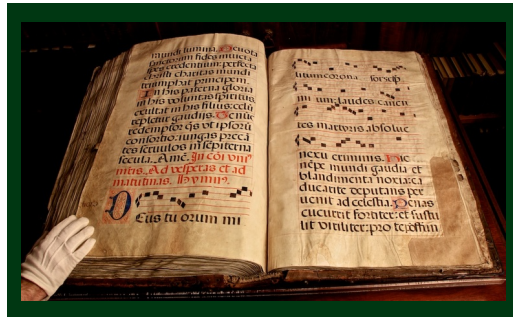 mundi lumina. Deuota
sanctorum fides inuicta
spes credentium: perfecta
christi charitas mundi
triumphat principem.
In his paterna gloria
in his voluntas spiritus,
exultat in his filius: celū
repletur gaudijs. Te nūc
redemptor q̄s ut ipsorū
consortio: iungas preca
tes seruulos in sepiterna
secula. Amē. In cōi vni⁹
mr̄is. Ad vesperas et ad
matutinas. Hymn⁹.
Deus tu orum mi
litum corona
mi um: laudes canen
tes martyris absolue
nexu criminis. Hic
nēpe mundi gaudia et
blandimenta noxia: ca
deputans per
uenit ad celestia. Penas
cucurrit fortiter: et sustu
lit viriliter: pro te